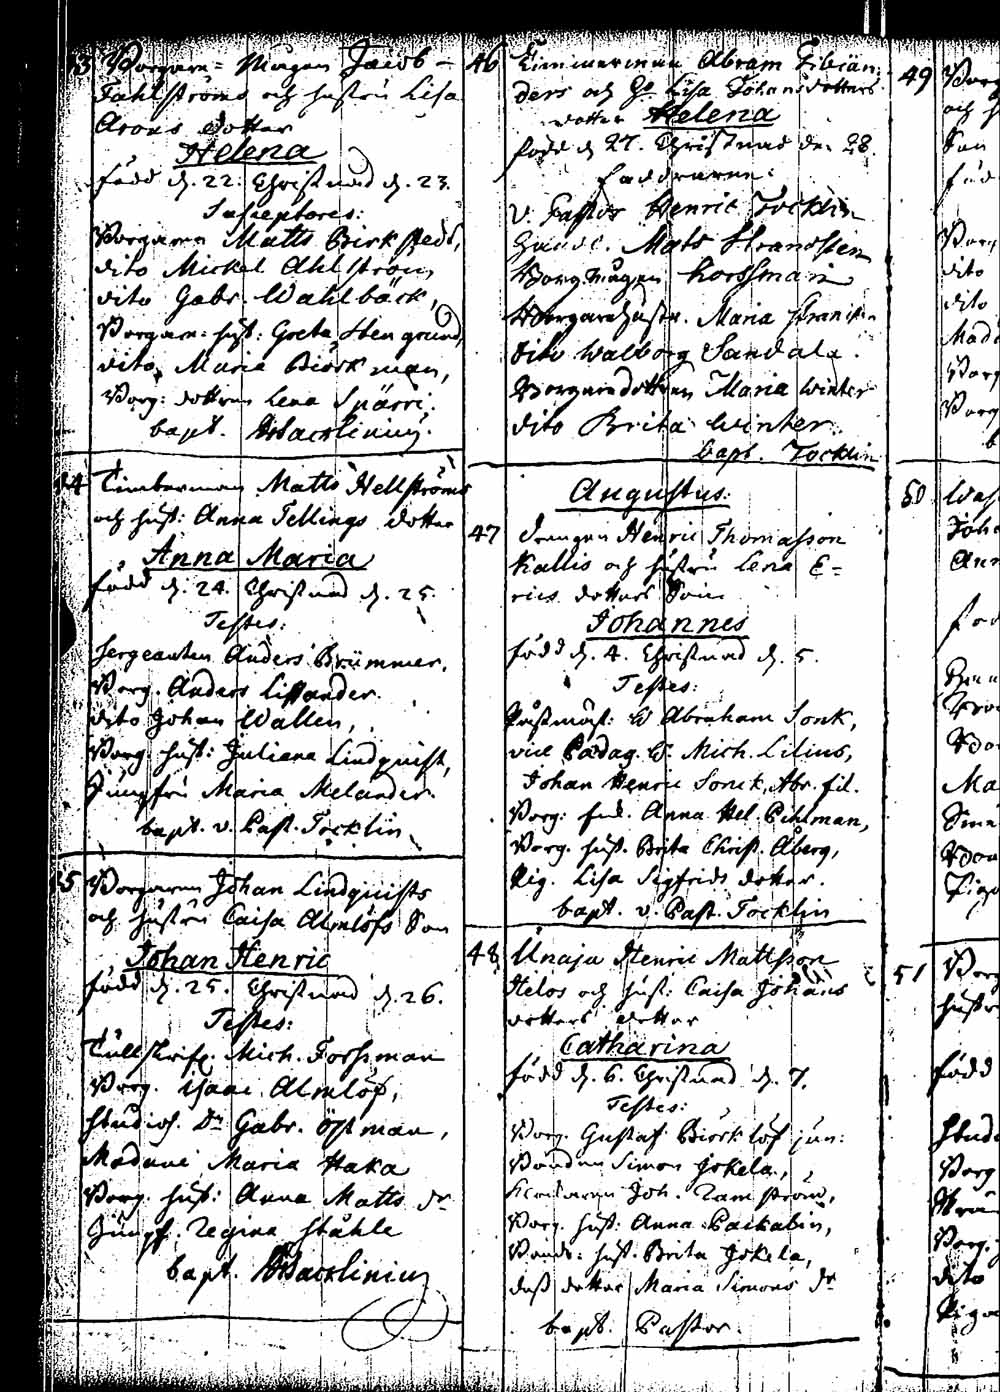 43 Borgare= Mågen Jacob
Fahlströms och hustru Lisa
Arons dotter
Helena
född d. 22. Christnad d. 23.
Susceptores:
Borgaren Matts Birkstedt,
dito Mickel Ahlström,
dito Gabr. Wahlbäck,
Borgare: hust: Greta Stengrund,
dito, Maria Biörkman,
Borg: dottren Lena Spärri.
bapt.
44 Timberman Matts Hellströms
och hust: Anna Tellings dotter
Anna Maria
född d. 24. Christnad d. 25.
Testes:
Sergeanten Anders Brümmer,
Borg. Anders Lissander.
dito Johan Wallen,
Borg. hust: Juliana Lindquist,
Jungfru Maria Melander.
bapt. v. Past. Tocklin
45 Borgaren Johan Lindquists
och hustru Caisa Almlöfs Son
Johan Henric
född d. 25. Christnad d. 26.
Testes:
Tullskrif. Mich. Forssman
Borg. Isaac Almlöf,
Studios. Dn Gabr. Östman,
Madame Maria Haka
Borg. hust: Anna Matts dr
Jungf. Regina Ståhle
bapt.
46 Timmerman Abram Zibian:
ders och Ho Lisa Johansdotters
dotter Helena
född d 27. Christnad den 28.
Faddrarne:
V. Pastor Henric Tocklin
Mats Strandsten
Borg. mågen Forssman
Borgarehustr. Maria
Dito Walborg Sandala.
Borgaredottren Maria Winter
dito Brita Winter.
bapt. Tocklin
Augustus:
47 Drengen Henric Thomasson
Kallis och hustru Lena E=
rics dotters Son
Johannes
född d. 4. Christnad d. 5.
Testes:
Postmäst: H Abraham Sonk,
vice Pædag. H. Mich. Lilius,
Johan Henric Sonck, Abr. fil.
Borg: Anna Hel. Pihlman,
Borg. hust. Brita Christ. Åberg,
Pig. Lisa Sigfrids dotter.
bapt. v. Past. Tocklin
48 Unaja Henric Mattsson
Helos och hust: Caisa Johans
dotters dotter
Catharina
född d. 6. Christnad d. 7.
Testes:
Borg. Gustaf Biörklöf jun:
Bonden Simon Jokela,
Joh. Ramström,
Borg. hust: Anna Packalin,
Bonde: hust. Brita Jokela,
dess dotter Maria Simons dr
bapt. Pastor.
49 Borg
och
Son
föd
Borg
dito
dito
Mad
Borg
Borg
50
Joha
Ann
föd
Ma
51 Borg
hustr
född
Stud
Borg
Borg.
dito
Piga